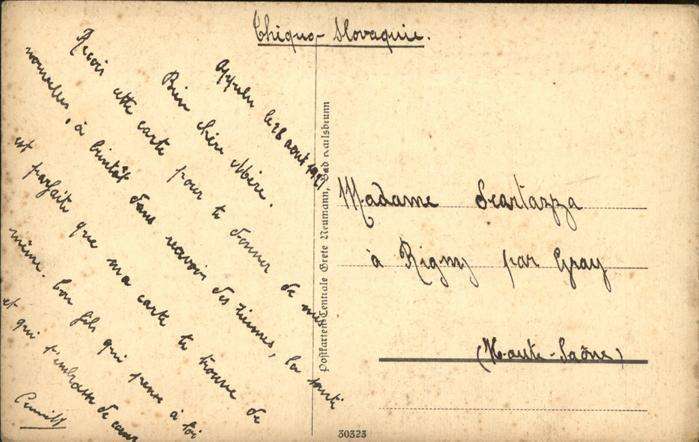 Thiquo-Slovaquie.
le 28 aout
Bien chère Mère.
Reçois cette carte pour te donner de mes
nouvelles, à bientôt d'en recevoir des tiennes, la santé
est parfaite que ma carte te trouve de
même. Ton fils qui pense à toi
et qui t'embrasse de cœur
Madame Scartazza
à Rigny par Gray
(Haute-Saône)
Postkarten-Centrale Grete Neumann, Bad Karlsbrunn
30323